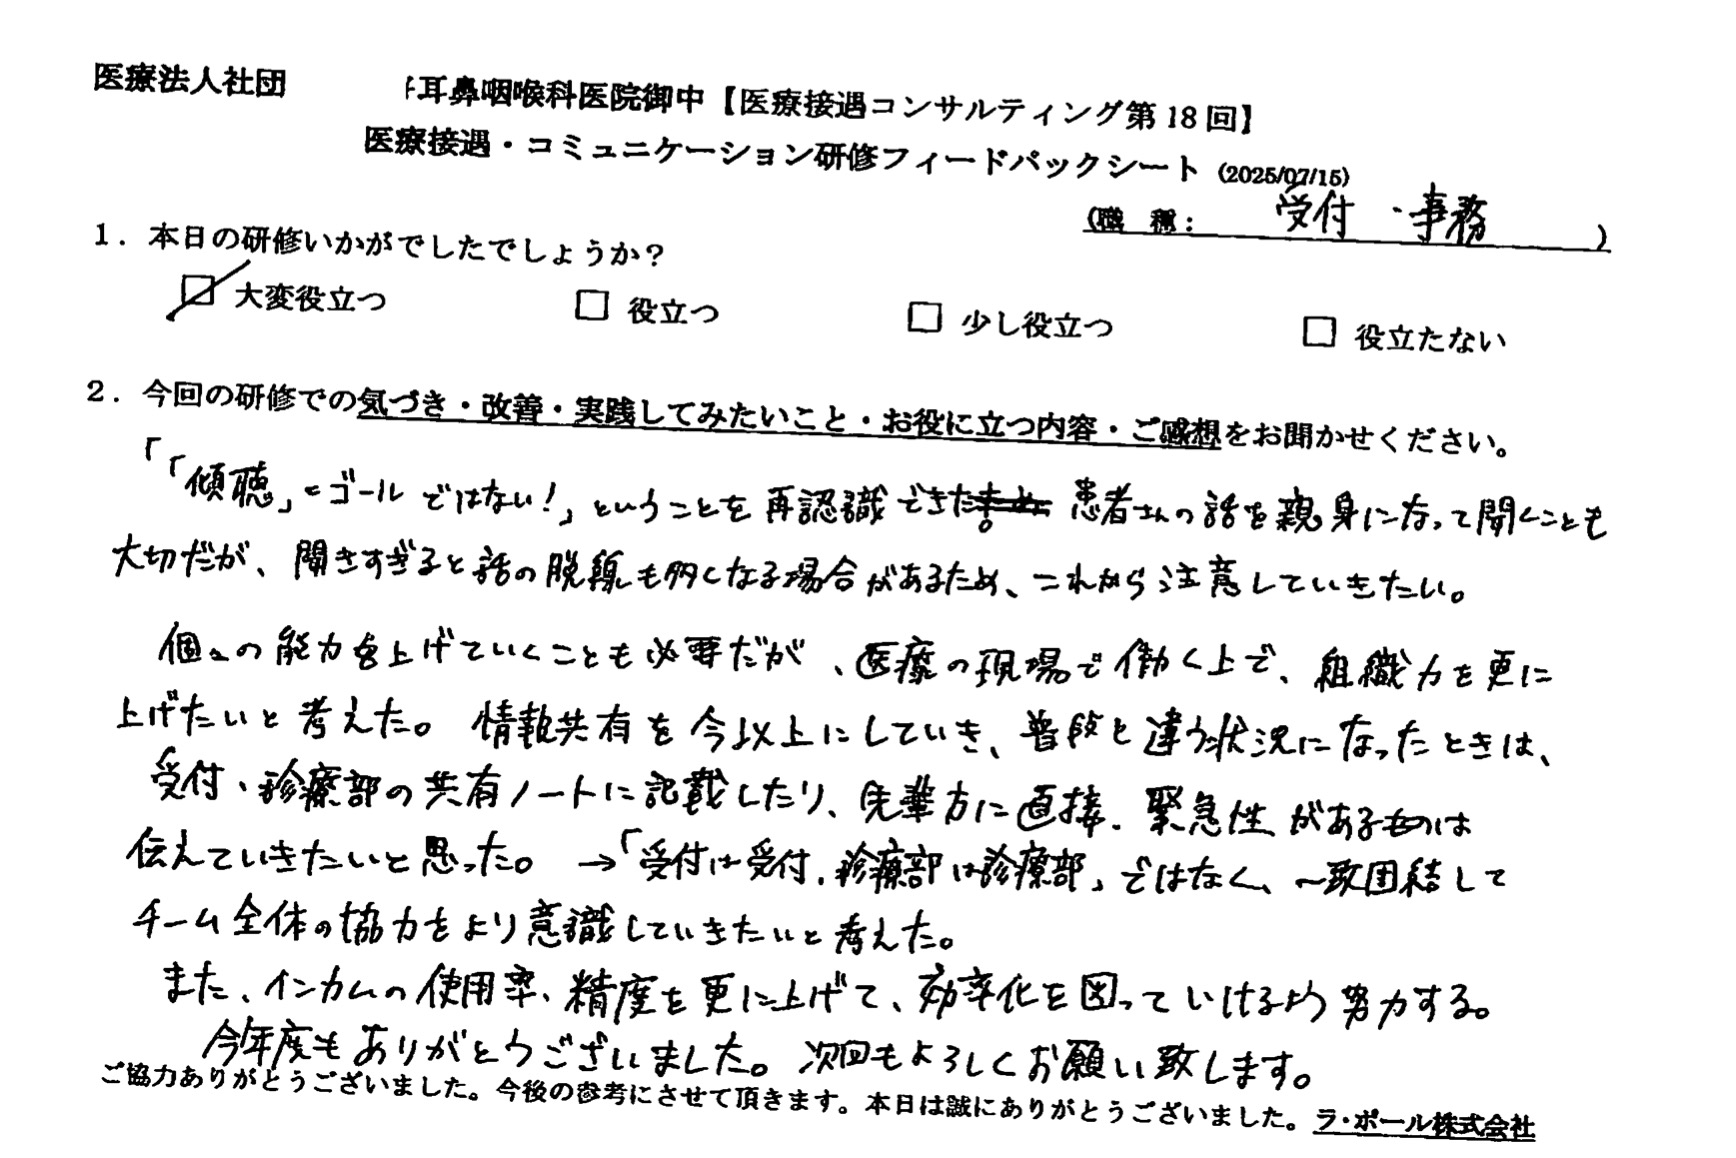 医療法人社団 耳鼻咽喉科医院御中【医療接遇コンサルティング第18回】
医療接遇・コミュニケーション研修フィードバックシート (2025/07/15)
(職 種: 受付・事務 )
1．本日の研修いかがでしたでしょうか？
☑ 大変役立つ □ 役立つ □ 少し役立つ □ 役立たない
2．今回の研修での気づき・改善・実践してみたいこと・お役に立つ内容・ご感想をお聞かせください。
「「傾聴」=ゴールではない!」ということを再認識できた。患者さんの話を親身になって聞くことも
大切だが、聞きすぎると話の脱線も多くなる場合があるため、これから注意していきたい。
個々の能力を上げていくことも必要だが、医療の現場で働く上で、組織力を更に
上げたいと考えた。情報共有を今以上にしていき、普段と違う状況になったときは、
受付、診療部の共有ノートに記載したり、先輩方に直接、緊急性があるものは
伝えていきたいと思った。→「受付は受付、診療部は診療部」ではなく、一致団結して
チーム全体の協力をより意識していきたいと考えた。
また、インカムの使用率、精度を更に上げて、効率化を図っていけるよう努力する。
今年度もありがとうございました。次回もよろしくお願い致します。
ご協力ありがとうございました。今後の参考にさせて頂きます。本日は誠にありがとうございました。ラ・ポール株式会社